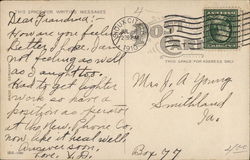 THIS SPACE FOR WRITING MESSAGES
Dear Grandma:
How are you feeling
Better, I hope. I am
not feeling as well
as I ought too.
Had to get lighter
work so have a
position as operator
at the New Phone Co.
now. Like it real well.
Answer soon,
Love,
SIOUX CITY
1910
THIS SPACE FOR ADDRESS ONLY
Mrs. J. A. Young
Smithland
Ia.
Box 77